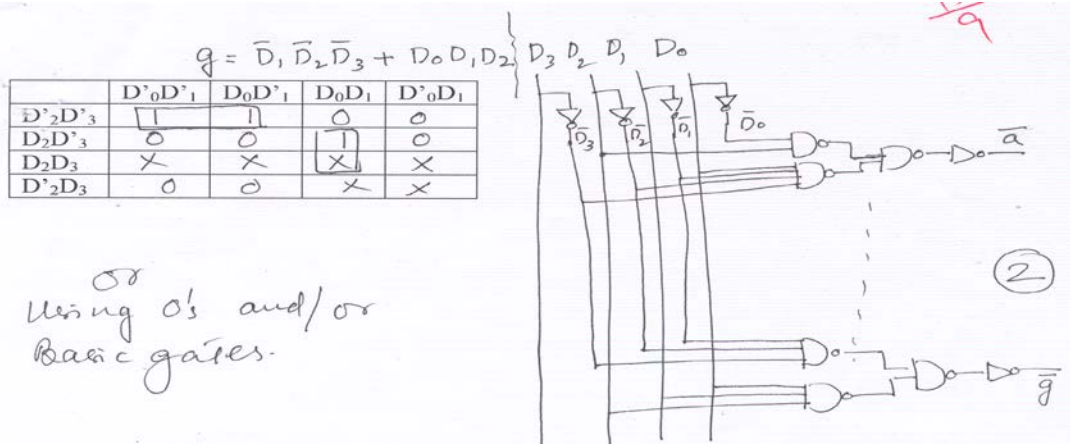 g = D̄₁ D̄₂ D̄₃ + D₀ D₁ D₂ D₃ D₂ D₁ D₀
D'₀D'₁ D₀D'₁ D₀D₁ D'₀D₁
D'₂D'₃ 1 1 0 0
D₂D'₃ 0 0 1 0
D₂D₃ X X X X
D'₂D₃ 0 0 X X
D̄₃ D̄₂ D̄₁ D̄₀
a̅
2
g̅
or
Using 0's and/or
Basic gates.